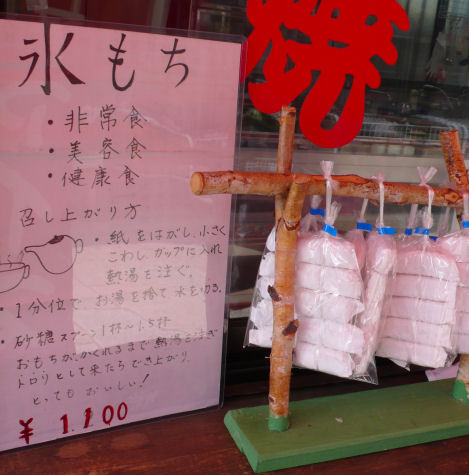 氷もち
・非常食
・美容食
・健康食
召し上がり方
・紙をはがし、小さく
こわし、カップに入れ
熱湯を注ぐ。
・1分位で、お湯を捨て、水を切る。
・砂糖スプーン1杯〜1.5杯
おもちがかくれるまで熱湯を注ぎ
トロリとして来たらでき上がり。
とってもおいしい!
¥1,100